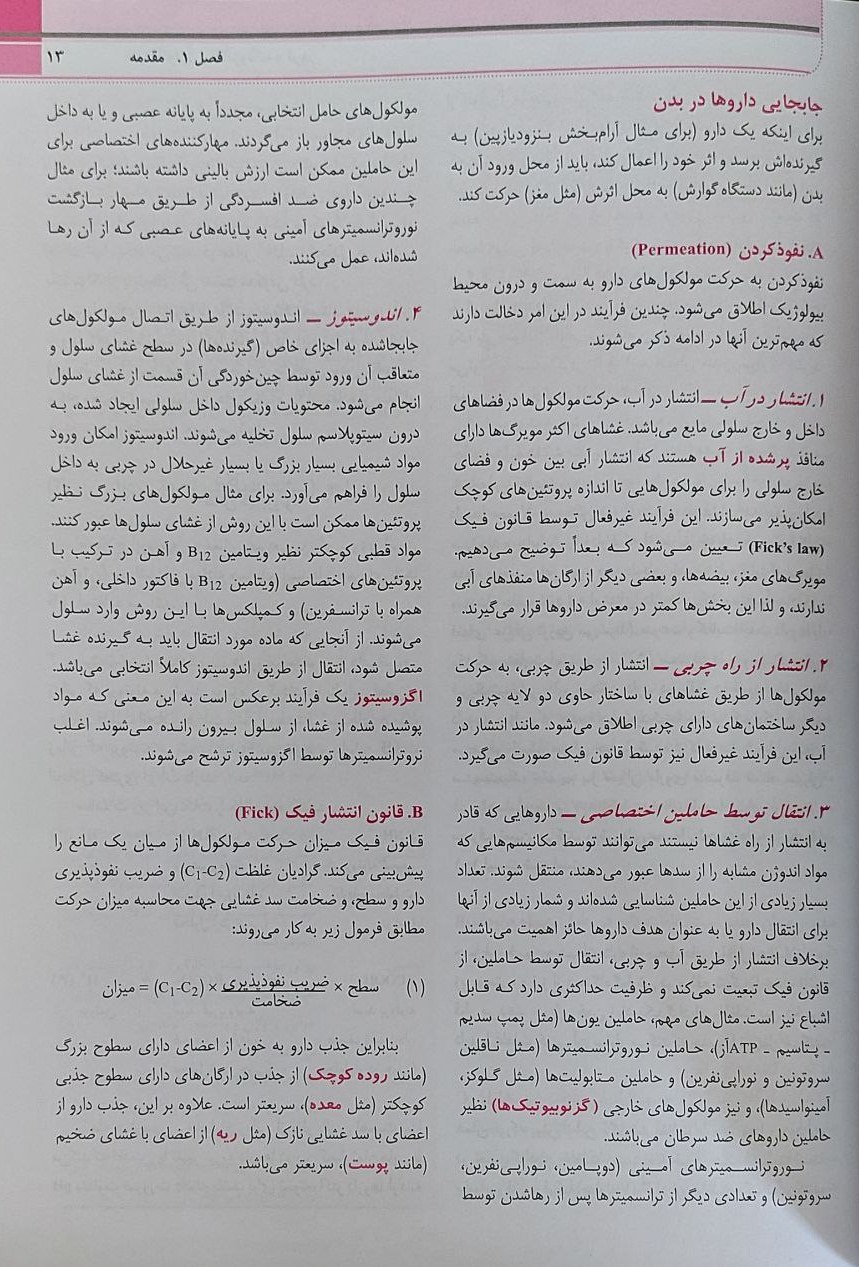 فصل ۱. مقدمه ۱۳
جابجایی داروها در بدن
برای اینکه یک دارو (برای مثال آرام‌بخش بنزودیازپین) به
گیرنده‌اش برسد و اثر خود را اعمال کند، باید از محل ورود آن به
بدن (مانند دستگاه گوارش) به محل اثرش (مثل مغز) حرکت کند.
A. نفوذکردن (Permeation)
نفوذکردن به حرکت مولکول‌های دارو به سمت و درون محیط
بیولوژیک اطلاق می‌شود. چندین فرآیند در این امر دخالت دارند
که مهم‌ترین آنها در ادامه ذکر می‌شوند.
۱. انتشار در آب ــ انتشار در آب، حرکت مولکول‌ها در فضاهای
داخل و خارج سلولی مایع می‌باشد. غشاهای اکثر مویرگ‌ها دارای
منافذ پرشده از آب هستند که انتشار آبی بین خون و فضای
خارج سلولی را برای مولکول‌هایی تا اندازه پروتئین‌های کوچک
امکان‌پذیر می‌سازند. این فرآیند غیرفعال توسط قانون فیک
(Fick's law) تعیین می‌شود که بعداً توضیح می‌دهیم.
مویرگ‌های مغز، بیضه‌ها، و بعضی دیگر از ارگان‌ها منفذهای آبی
ندارند، و لذا این بخش‌ها کمتر در معرض داروها قرار می‌گیرند.
۲. انتشار از راه چربی ــ انتشار از طریق چربی، به حرکت
مولکول‌ها از طریق غشاهای با ساختار حاوی دو لایه چربی و
دیگر ساختمان‌های دارای چربی اطلاق می‌شود. مانند انتشار در
آب، این فرآیند غیرفعال نیز توسط قانون فیک صورت می‌گیرد.
۳. انتقال توسط حاملین اختصاصی ــ داروهایی که قادر
به انتشار از راه غشاها نیستند می‌توانند توسط مکانیسم‌هایی که
مواد اندوژن مشابه را از سدها عبور می‌دهند، منتقل شوند. تعداد
بسیار زیادی از این حاملین شناسایی شده‌اند و شمار زیادی از آنها
برای انتقال دارو یا به عنوان هدف داروها حائز اهمیت می‌باشند.
برخلاف انتشار از طریق آب و چربی، انتقال توسط حاملین، از
قانون فیک تبعیت نمی‌کند و ظرفیت حداکثری دارد که قابل
اشباع نیز است. مثال‌های مهم، حاملین یون‌ها (مثل پمپ سدیم
ـ پتاسیم ـ ATPآز)، حاملین نوروترانسمیترها (مثل ناقلین
سروتونین و نوراپی‌نفرین) و حاملین متابولیت‌ها (مثل گلوکز،
آمینواسیدها)، و نیز مولکول‌های خارجی (گزنوبیوتیک‌ها) نظیر
حاملین داروهای ضد سرطان می‌باشند.
نوروترانسمیترهای آمینی (دوپامین، نوراپی‌نفرین،
سروتونین) و تعدادی دیگر از ترانسمیترها پس از رهاشدن توسط
مولکول‌های حامل انتخابی، مجدداً به پایانه عصبی و یا به داخل
سلول‌های مجاور باز می‌گردند. مهارکننده‌های اختصاصی برای
این حاملین ممکن است ارزش بالینی داشته باشند؛ برای مثال
چندین داروی ضد افسردگی از طریق مهار بازگشت
نوروترانسمیترهای آمینی به پایانه‌های عصبی که از آن رها
شده‌اند، عمل می‌کنند.
۴. اندوسیتوز ــ اندوسیتوز از طریق اتصال مولکول‌های
جابجاشده به اجزای خاص (گیرنده‌ها) در سطح غشای سلول و
متعاقب آن ورود توسط چین‌خوردگی آن قسمت از غشای سلول
انجام می‌شود. محتویات وزیکول داخل سلولی ایجاد شده، به
درون سیتوپلاسم سلول تخلیه می‌شوند. اندوسیتوز امکان ورود
مواد شیمیایی بسیار بزرگ یا بسیار غیرحلال در چربی به داخل
سلول را فراهم می‌آورد. برای مثال مولکول‌های بزرگ نظیر
پروتئین‌ها ممکن است با این روش از غشای سلول‌ها عبور کنند.
مواد قطبی کوچکتر نظیر ویتامین B12 و آهن در ترکیب با
پروتئین‌های اختصاصی (ویتامین B12 با فاکتور داخلی، و آهن
همراه با ترانسفرین) و کمپلکس‌ها با این روش وارد سلول
می‌شوند. از آنجایی که ماده مورد انتقال باید به گیرنده غشا
متصل شود، انتقال از طریق اندوسیتوز کاملاً انتخابی می‌باشد.
اگزوسیتوز یک فرآیند برعکس است به این معنی که مواد
پوشیده شده از غشا، از سلول بیرون رانده می‌شوند. اغلب
نروترانسمیترها توسط اگزوسیتوز ترشح می‌شوند.
B. قانون انتشار فیک (Fick)
قانون فیک میزان حرکت مولکول‌ها از میان یک مانع را
پیش‌بینی می‌کند. گرادیان غلظت (C1-C2) و ضریب نفوذپذیری
دارو و سطح، و ضخامت سد غشایی جهت محاسبه میزان حرکت
مطابق فرمول زیر به کار می‌روند:
(۱) سطح × ضریب نفوذپذیری × (C1-C2) = میزان
ضخامت
بنابراین جذب دارو به خون از اعضای دارای سطوح بزرگ
(مانند روده کوچک) از جذب در ارگان‌های دارای سطوح جذبی
کوچکتر (مثل معده)، سریعتر است. علاوه بر این، جذب دارو از
اعضای با سد غشایی نازک (مثل ریه) از اعضای با غشای ضخیم
(مانند پوست)، سریعتر می‌باشد.